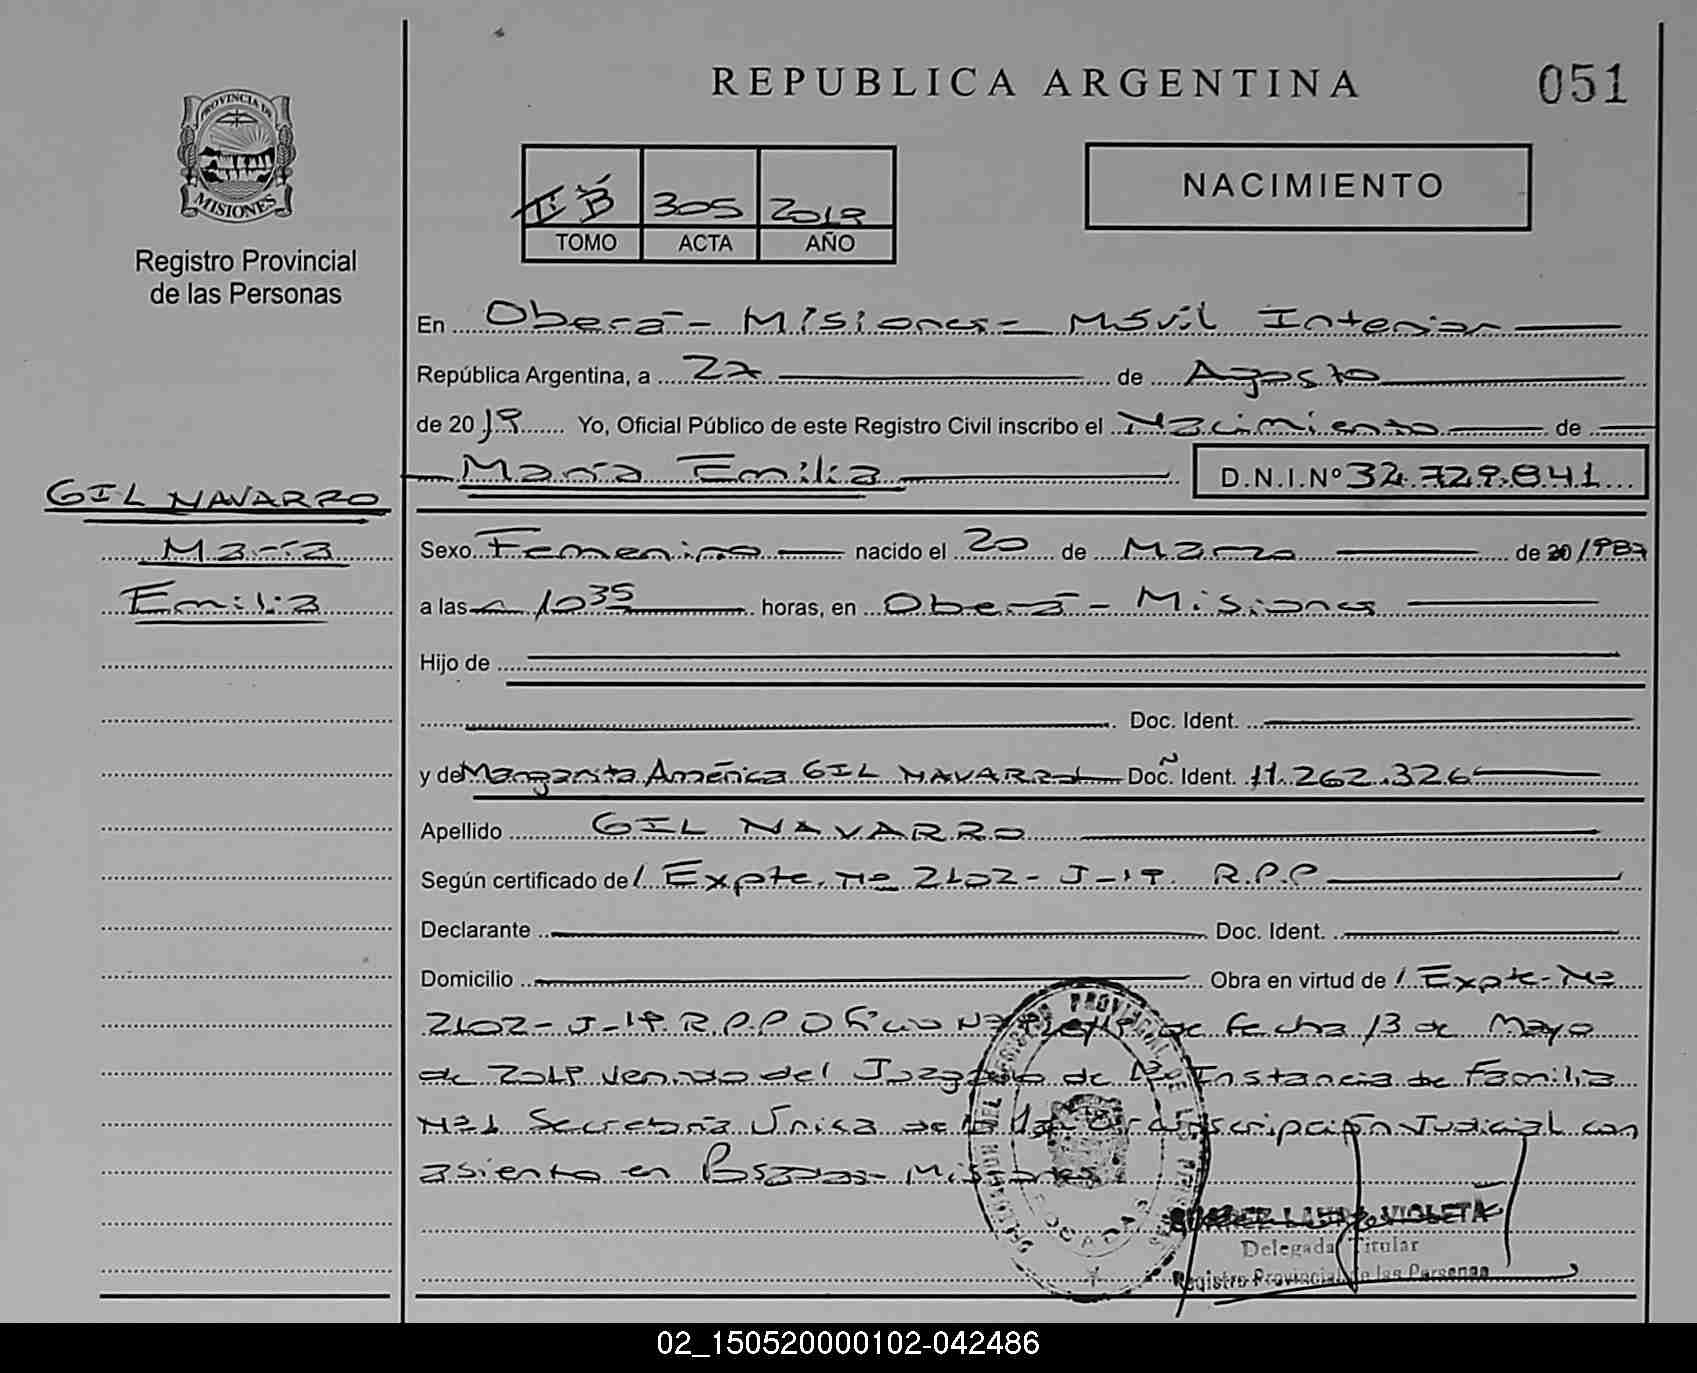 REPUBLICA ARGENTINA
051
PROVINCIA DE
MISIONES
Registro Provincial
de las Personas
305 2019
TOMO ACTA AÑO
NACIMIENTO
En Oberá - Misiones - Móvil Interior
República Argentina, a 27 de Agosto
de 2019 Yo, Oficial Público de este Registro Civil inscribo el Nacimiento de
María Emilia D.N.I.Nº 32.729.841
GIL NAVARRO
María
Emilia
Sexo Femenino nacido el 20 de Marzo de 20/1987
a las 10 35 horas, en Oberá - Misiones
Hijo de
Doc. Ident.
y de Margarita América GIL NAVARRO Doc. Ident. 11.262.326
Apellido GIL NAVARRO
Según certificado de / Expte. Nº 2102-J-19 R.P.P
Declarante Doc. Ident.
Domicilio Obra en virtud de / Expte. Nº
2102-J-19 R.P.P Oficio Nº de fecha 13 de Mayo
de 2019 venido del Juzgado de 1ª Instancia de Familia
Nº1 Secretaría Única de la Circunscripción Judicial con
asiento en Posadas - Misiones
VIOLETA
Delegada Titular
Registro Provincial de las Personas
02_150520000102-042486